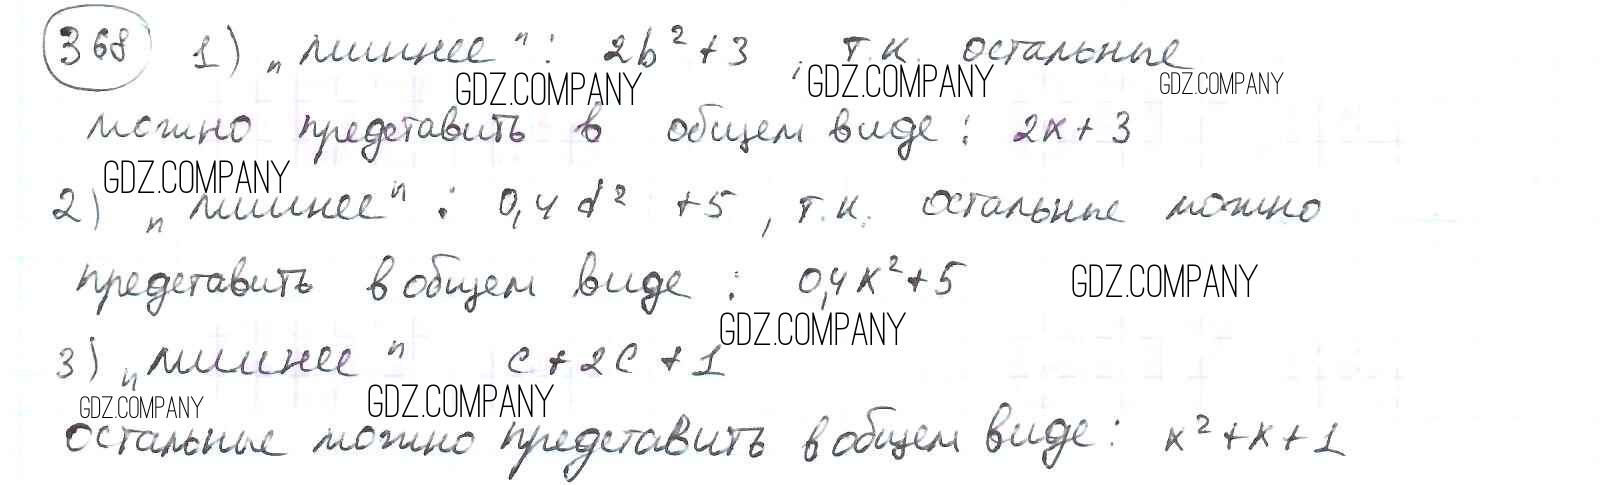 368 1) „лишнее": 2b² + 3, т.к. остальные
GDZ.COMPANY GDZ.COMPANY GDZ.COMPANY
можно представить в общем виде: 2x + 3
GDZ.COMPANY
2) „лишнее": 0,4d² + 5, т.к. остальные можно
представить в общем виде: 0,4x² + 5 GDZ.COMPANY
GDZ.COMPANY
3) „лишнее" c + 2c + 1
GDZ.COMPANY GDZ.COMPANY
остальные можно представить в общем виде: x² + x + 1